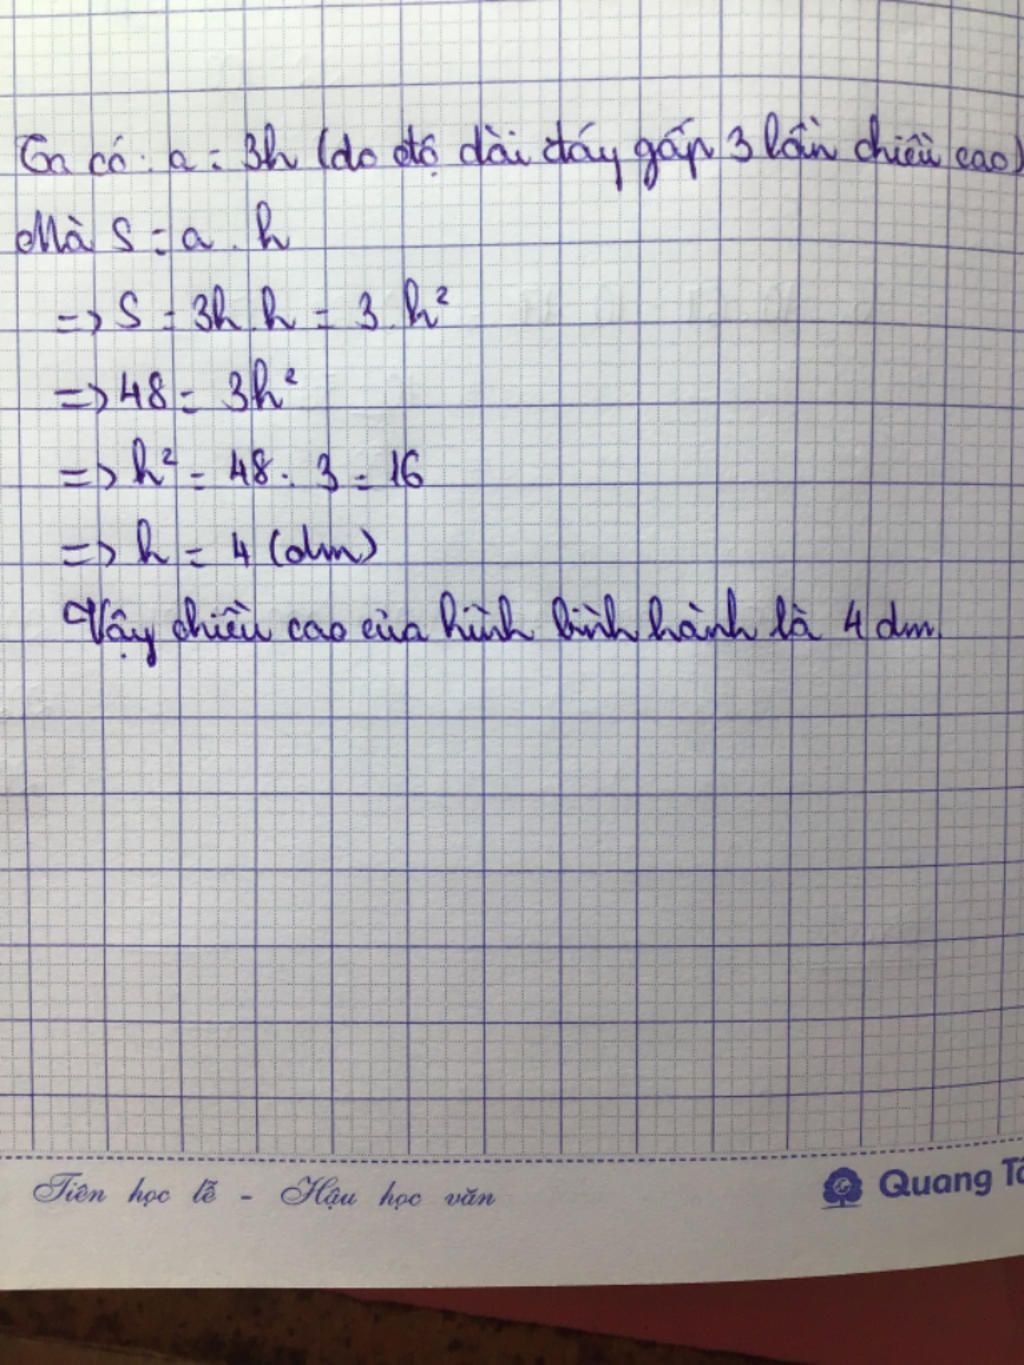 Ta có: a = 3h (do độ dài đáy gấp 3 lần chiều cao)
Mà S = a . h
=> S = 3h . h = 3 . h²
=> 48 = 3h²
=> h² = 48 : 3 = 16
=> h = 4 (dm)
Vậy chiều cao của hình bình hành là 4 dm.
Tiên học lễ - Hậu học văn
Quang